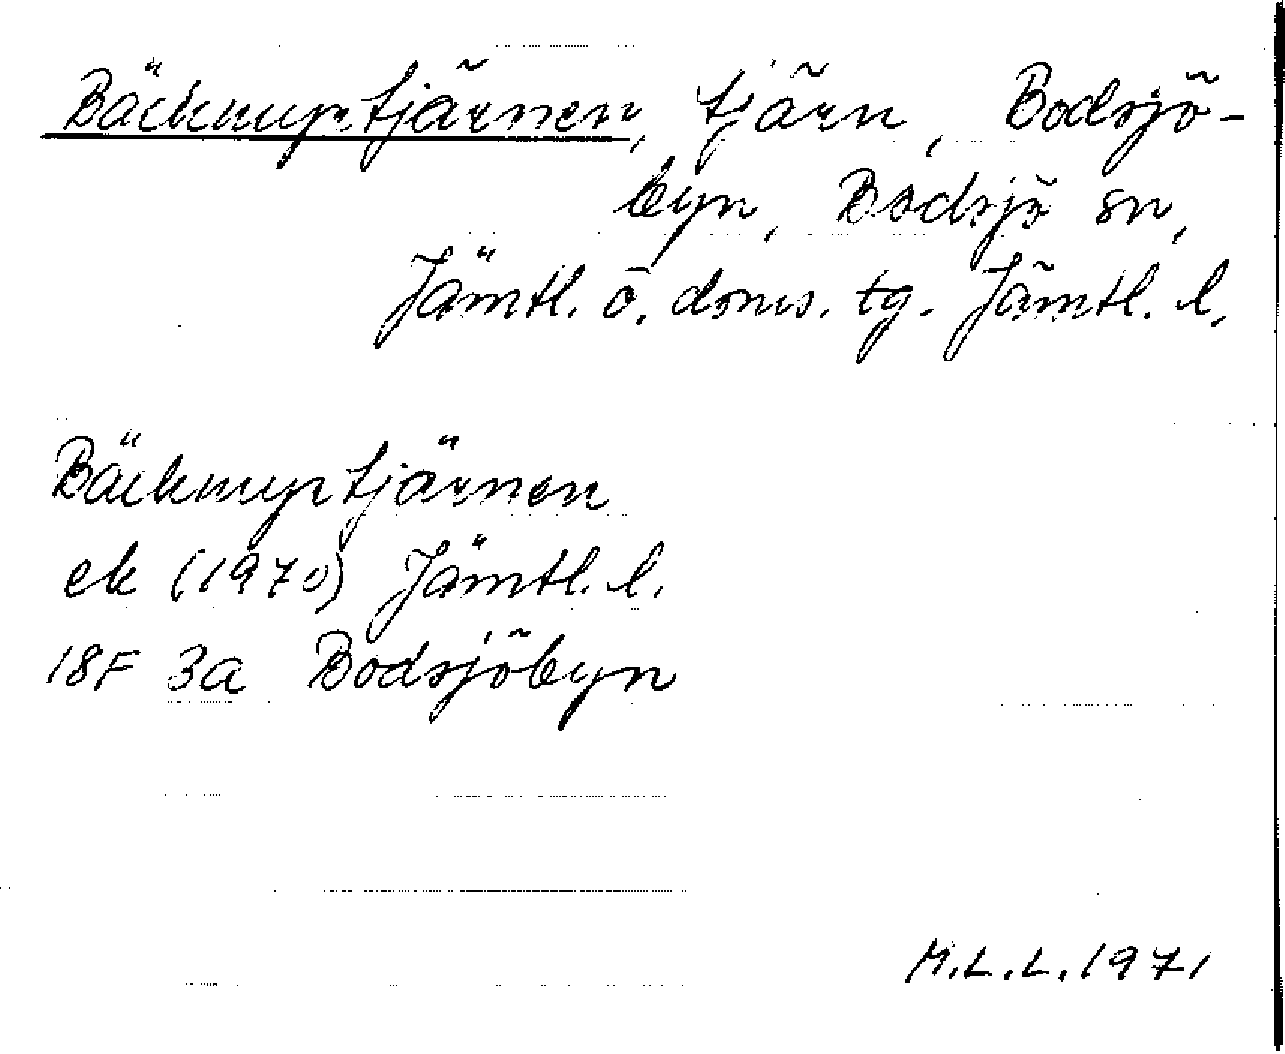 Bäckmyrtjärnen, tjärn, Bodsjö-
byn, Bodsjö sn,
Jämtl. ö. doms. tg. Jämtl. l.
Bäckmyrtjärnen
ek (1970) Jämtl. l.
18F 3a Bodsjöbyn
M.L.L. 1971